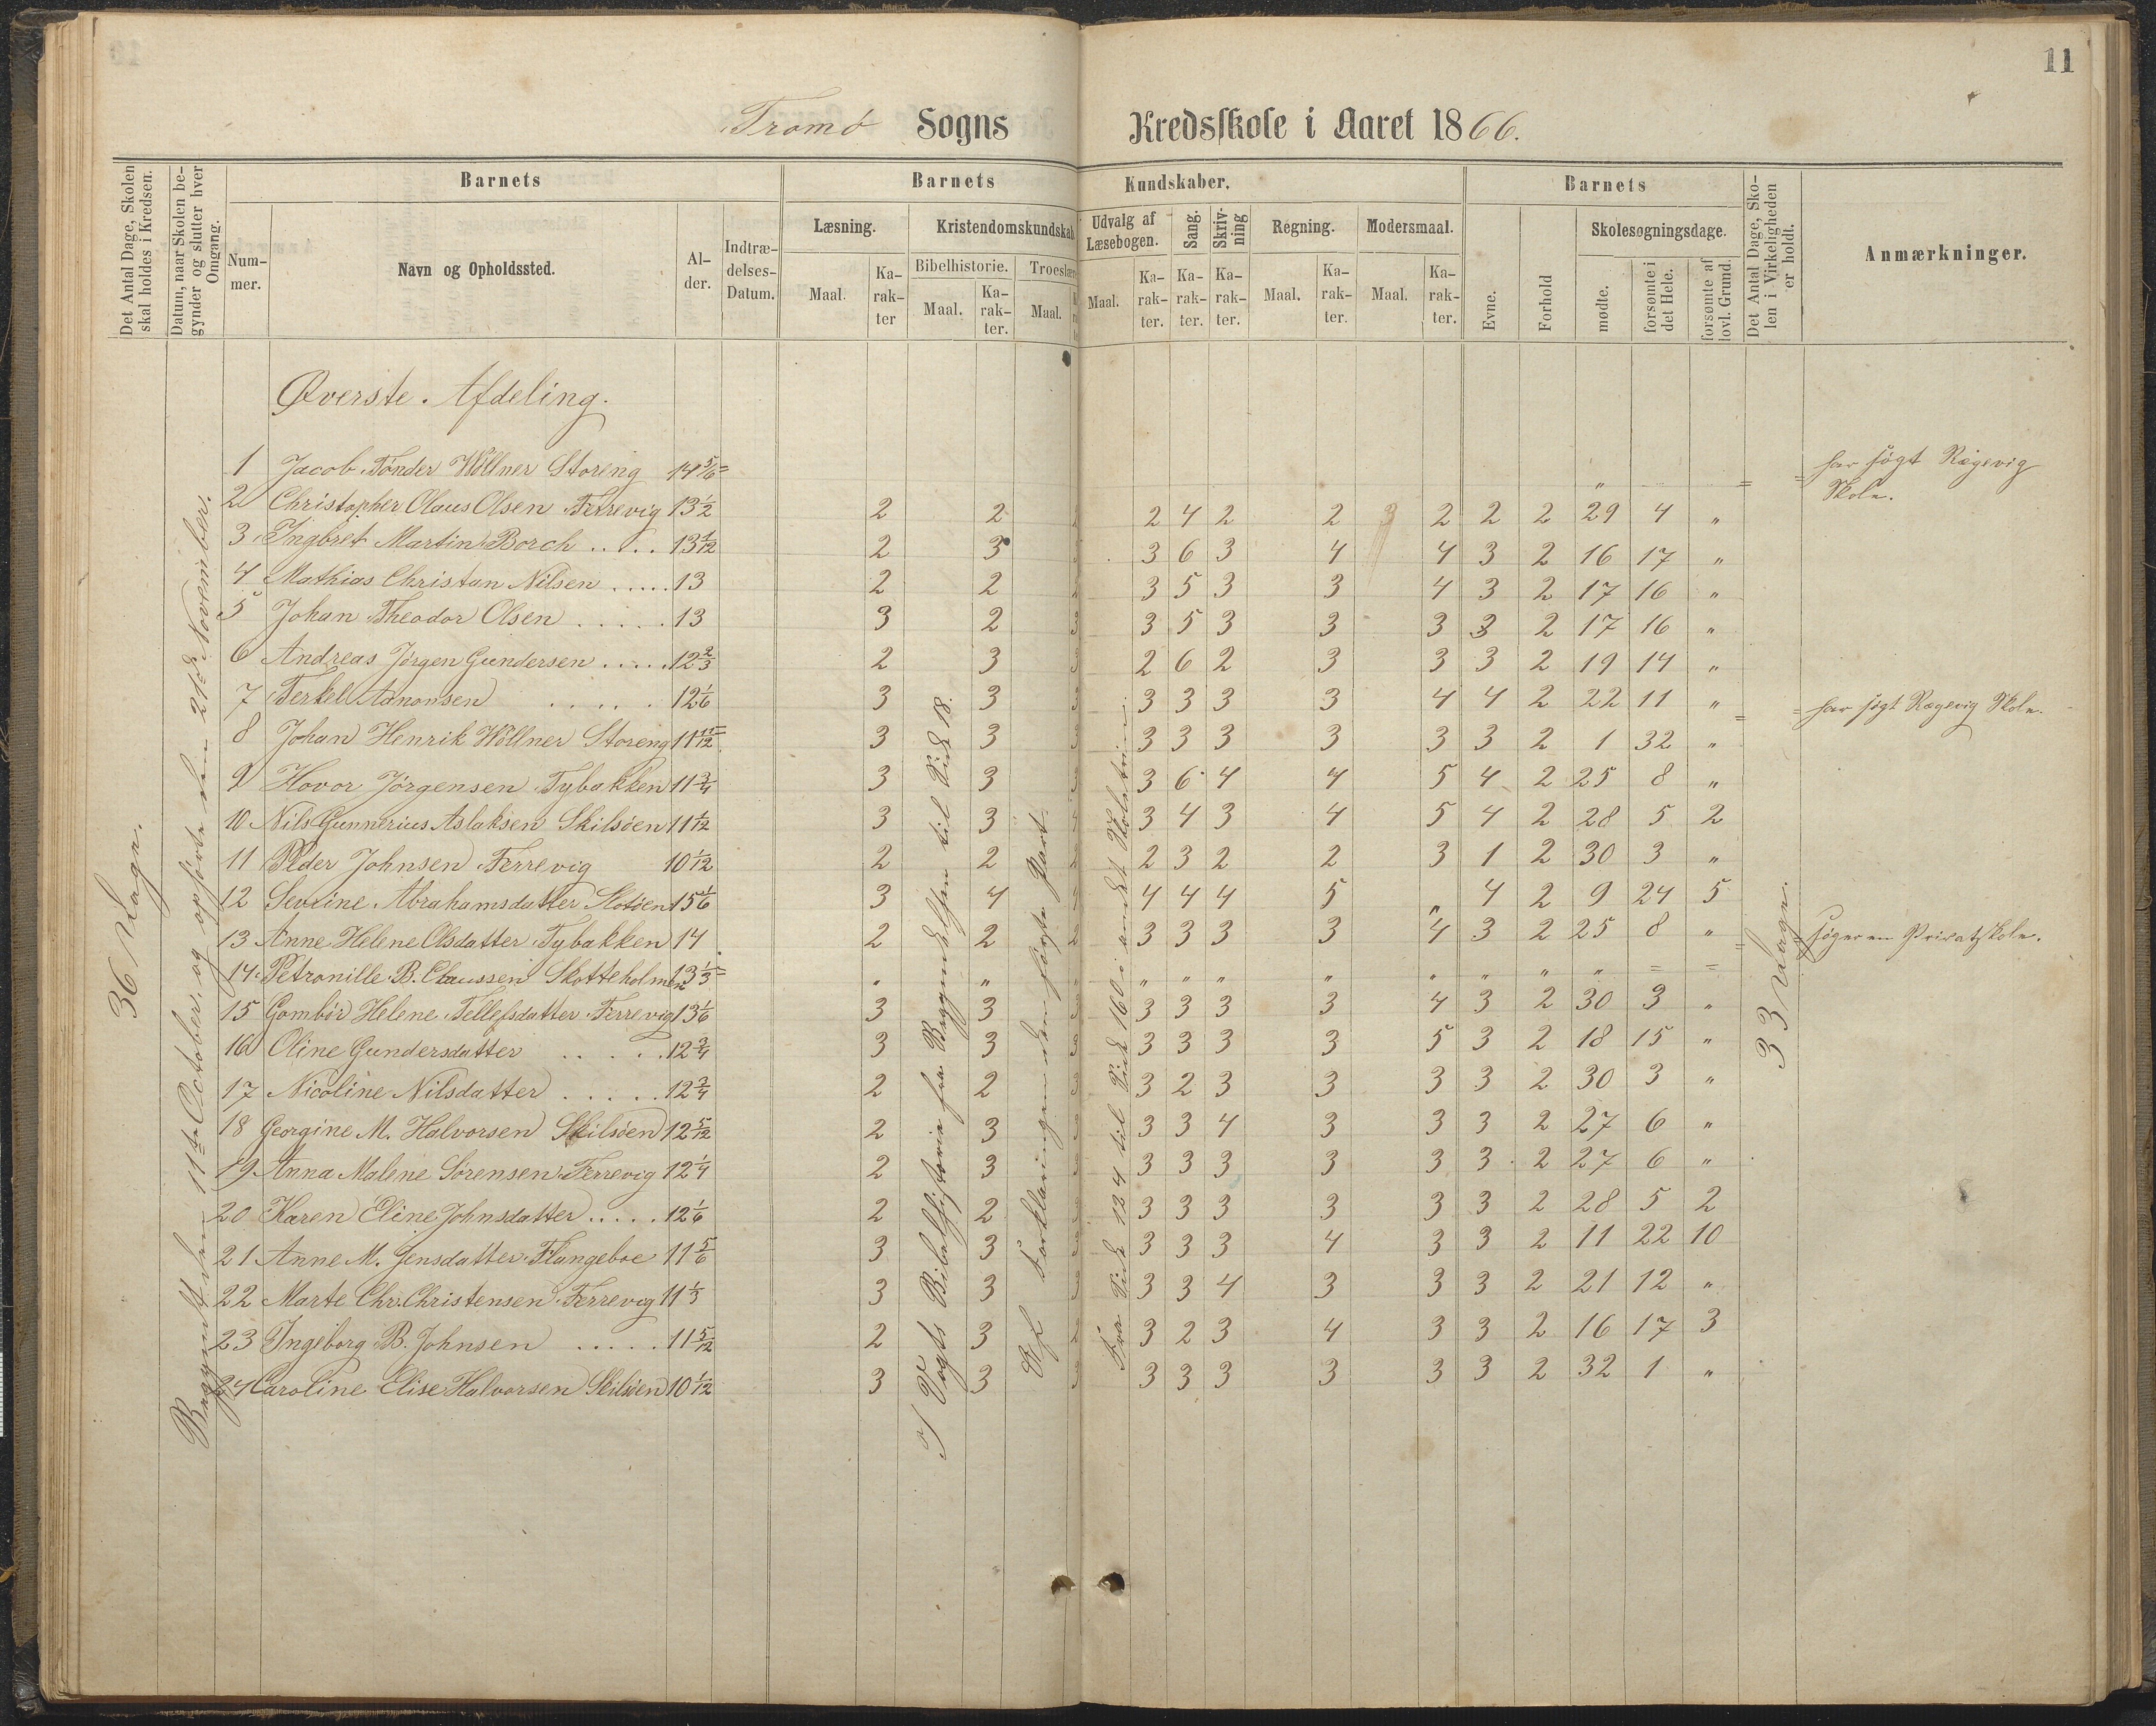 11
Tromö Sogns Kredsskole i Aaret 1866.
Det Antal Dage, Skolen skal holdes i Kredsen.
Datum, naar Skolen begynder og slutter hver Omgang.
Barnets
Barnets Kundskaber.
Barnets
Det Antal Dage, Skolen i Virkeligheden er holdt.
Anmærkninger.
Nummer.
Navn og Opholdssted.
Alder.
Indtrædelses-Datum.
Læsning.
Kristendomskundskab
Udvalg af Læsebogen.
Sang.
Skrivning
Regning.
Modersmaal.
Evne.
Forhold
Skolesøgningsdage.
Bibelhistorie.
Troeslære
Maal. Karakter Maal. Karakter. Maal.
Maal. Karakter. Karakter. Karakter. Maal. Karakter. Maal. Karakter.
mødte.
forsømte i det Hele.
forsømte af lovl. Grund.
Øverste Afdeling.
36 Dage.
Begyndt den 11te October, og ophørte den 21de November.
I Vogts Bibelhistorie fra Begyndelsen til Side 18.
Af Forklaringen den første Part.
Fra Side 124 til Side 160 i andet Skoletrin.
33 Dage.
1 Jacob Tönder Wöllner Storeng 14 5/6 = " = = har søgt Rægevig Skole.
2 Christopher Olaus Olsen Færrevig 13 1/2 2 2 2 4 2 2 3 2 2 2 29 4 "
3 Ingbret Martin Borch ..... 13 1/12 2 3 3 6 3 4 4 3 2 16 17 "
4 Mathias Christan Nilsen ..... 13 2 2 3 5 3 3 4 3 2 17 16 "
5 Johan Theodor Olsen ..... 13 3 2 3 5 3 3 3 3 2 17 16 "
6 Andreas Jørgen Gundersen ..... 12 2/3 2 3 2 6 2 3 3 3 2 19 14 "
7 Terkel Aanonsen ..... 12 1/6 3 3 3 3 3 3 4 4 2 22 11 "
8 Johan Henrik Wöllner Storeng 11 11/12 3 3 3 3 3 3 3 3 2 1 32 " = = har søgt Rægevig Skole.
9 Hovor Jörgensen Tybakken 11 3/4 3 3 3 6 4 4 5 4 2 25 8 "
10 Nils Gunnerius Aslaksen Skilsöen 11 1/12 3 3 3 4 3 4 5 4 2 28 5 2
11 Peder Johnsen Færrevig 10 1/12 2 2 2 3 2 2 3 1 2 30 3 "
12 Sevrine Abrahamsdatter 15 1/6 3 4 4 4 4 5 " 4 2 9 24 5
13 Anne Helene Olsdatter Tybakken 14 2 2 3 3 3 3 4 3 2 25 8 "
14 Petronille B. Claussen Skotteholmen 13 1/3 = " " " " " " " " " " = = = = søger en Privatskole.
15 Gombör Helene Tellefsdatter Færrevig 13 1/6 3 3 3 3 3 3 4 3 2 30 3 "
16 Oline Gundersdatter ..... 12 3/4 3 3 3 3 3 3 5 3 2 18 15 "
17 Nicoline Nilsdatter ..... 12 3/4 2 2 3 2 3 3 3 3 2 30 3 "
18 Georgine M. Halvorsen Skilsöen 12 5/12 2 3 3 3 4 3 3 3 2 27 6 "
19 Anna Malene Sörensen Færrevig 12 1/4 2 3 3 3 3 3 3 3 2 27 6 "
20 Karen Eline Johnsdatter ..... 12 1/6 2 2 3 3 3 3 3 3 2 28 5 2
21 Anne M. Jensdatter Flangeboe 11 5/6 3 3 3 3 3 4 3 3 2 11 22 10
22 Marte Chr. Christensen Færrevig 11 1/3 3 3 3 3 4 3 3 3 2 21 12 "
23 Ingeborg B. Johnsen ..... 11 5/12 2 3 3 2 3 4 3 3 2 16 17 3
24 Caroline Elise Halvorsen Skilsöen 10 1/12 3 3 3 3 3 3 3 3 2 32 1 "